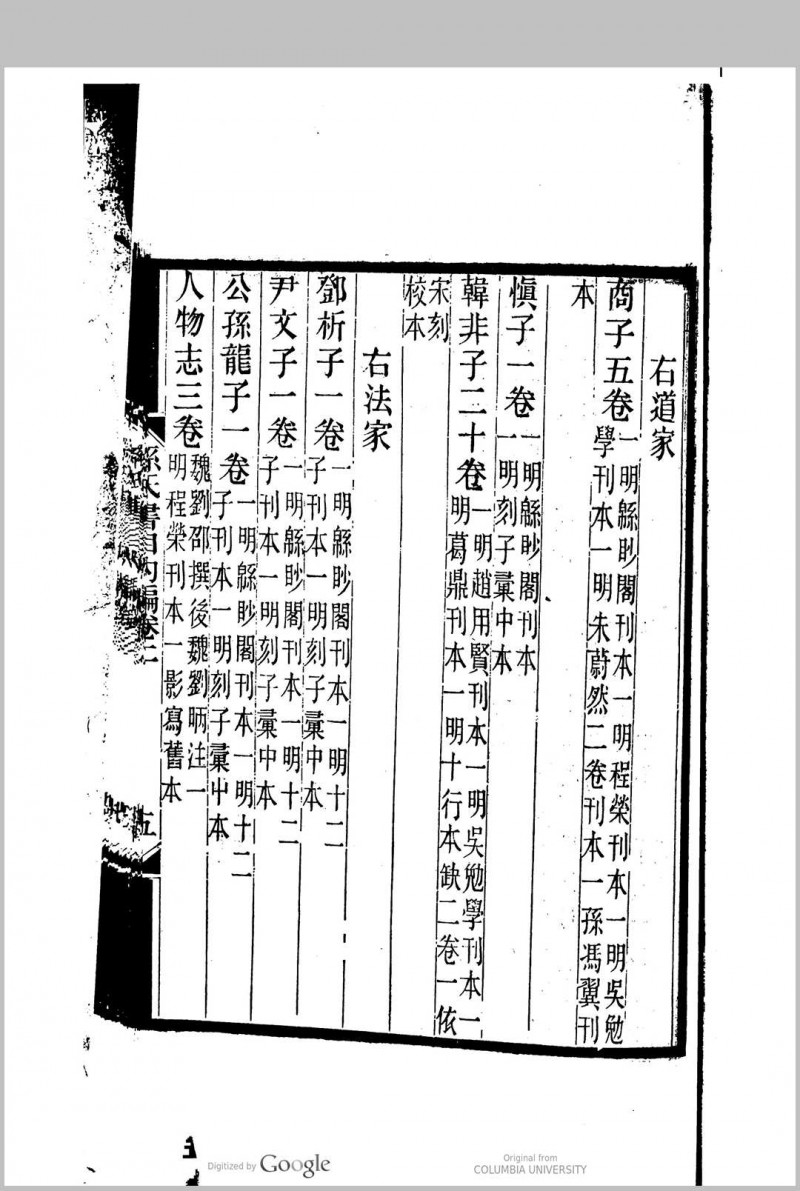 右道家
商子五卷一明緜眇閣刊本一明程榮刊本一明吳勉
學刊本一明朱蔚然二卷刊本一孫馮翼刊
本
愼子一卷一明緜眇閣刊本
一明刻子彙中本
韓非子二十卷一明趙用賢刊本一明吳勉學刊本一
明葛鼎刊本一明十行本缺二卷一依
宋刻
校本
右法家
鄧析子一卷一明緜眇閣刊本一明十二
子刊本一明刻子彙中本
尹文子一卷一明緜眇閣刊本一明十二
子刊本一明刻子彙中本
公孫龍子一卷一明緜眇閣刊本一明十二
子刊本一明刻子彙中本
人物志三卷魏劉邵撰後魏劉昞注一
明程榮刊本一影寫舊本
孫氏書目內編卷二
五
Digitized by Google
Original from
COLUMBIA UNIVERSITY